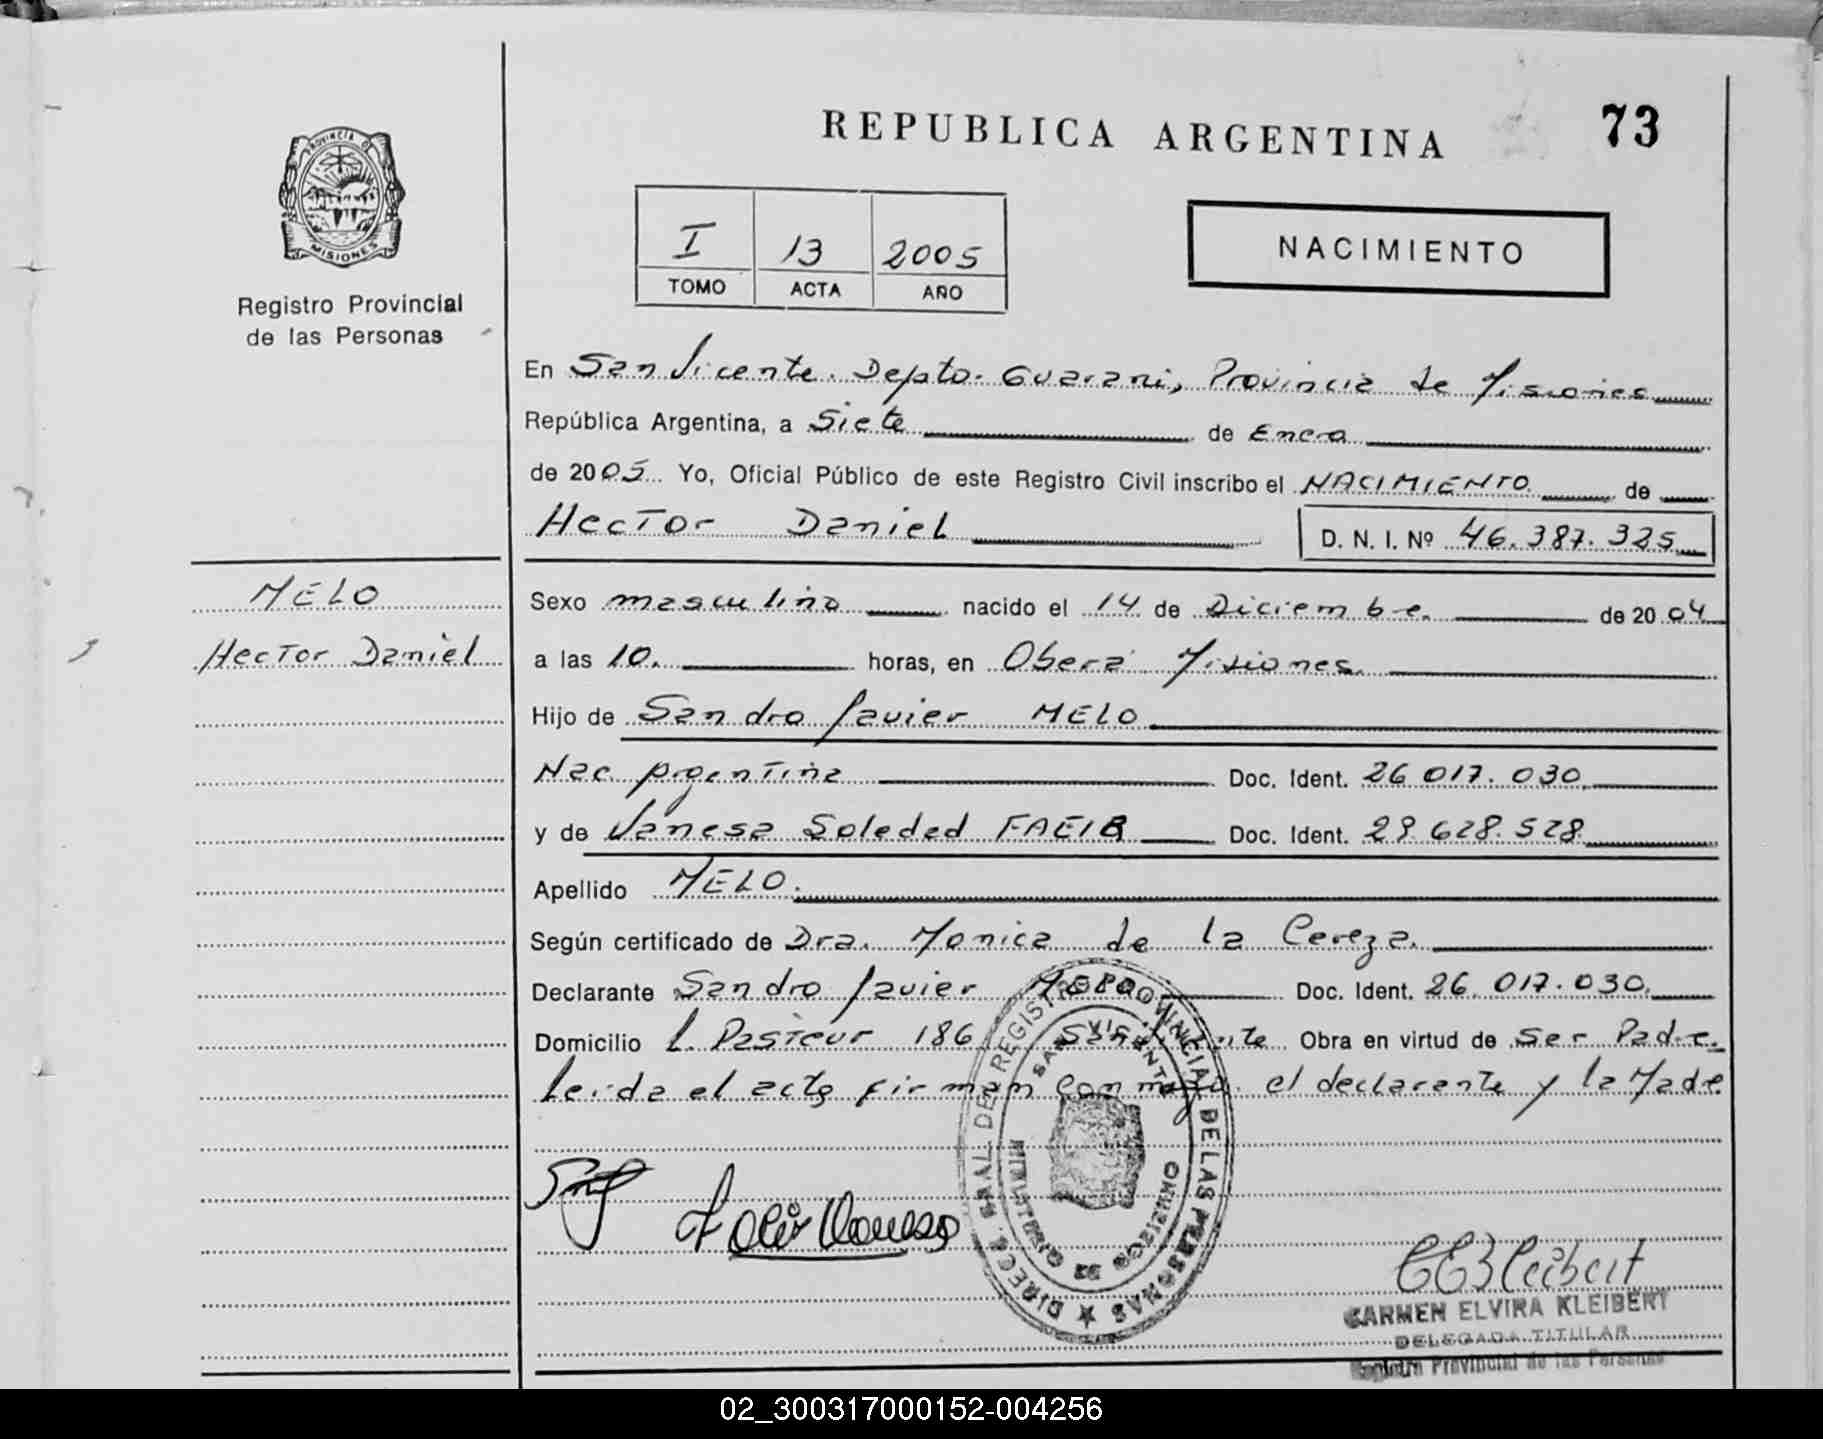 REPUBLICA ARGENTINA
73
PROVINCIA DE
MISIONES
Registro Provincial
de las Personas
I 13 2005
TOMO ACTA AÑO
NACIMIENTO
En San Vicente. Depto. Guarani, Provincia de Misiones
República Argentina, a Siete de Enero
de 2005 Yo, Oficial Público de este Registro Civil inscribo el NACIMIENTO de
Hector Daniel D. N. I. Nº 46.387.325
MELO
Hector Daniel
Sexo masculino nacido el 14 de Diciembre de 2004
a las 10. horas, en Oberá Misiones.
Hijo de Sandro Javier MELO
Nac Argentina Doc. Ident. 26 017.030
y de Vanesa Soledad Doc. Ident. 29.628.528
Apellido MELO.
Según certificado de Dra. Monica de la Cereza.
Declarante Sandro Javier MELO Doc. Ident. 26.017.030.
Domicilio L. Pasteur 186 San Vicente Obra en virtud de Ser Padre.
Leida el acta firman conmigo. el declarante y la Madre
DIREC. GRAL. DE REGISTRO PROVINCIAL DE LAS PERSONAS
SAN VICENTE
MINISTERIO DE GOBIERNO
CARMEN ELVIRA KLEIBERT
DELEGADA TITULAR
Registro Provincial de las Personas
02_300317000152-004256